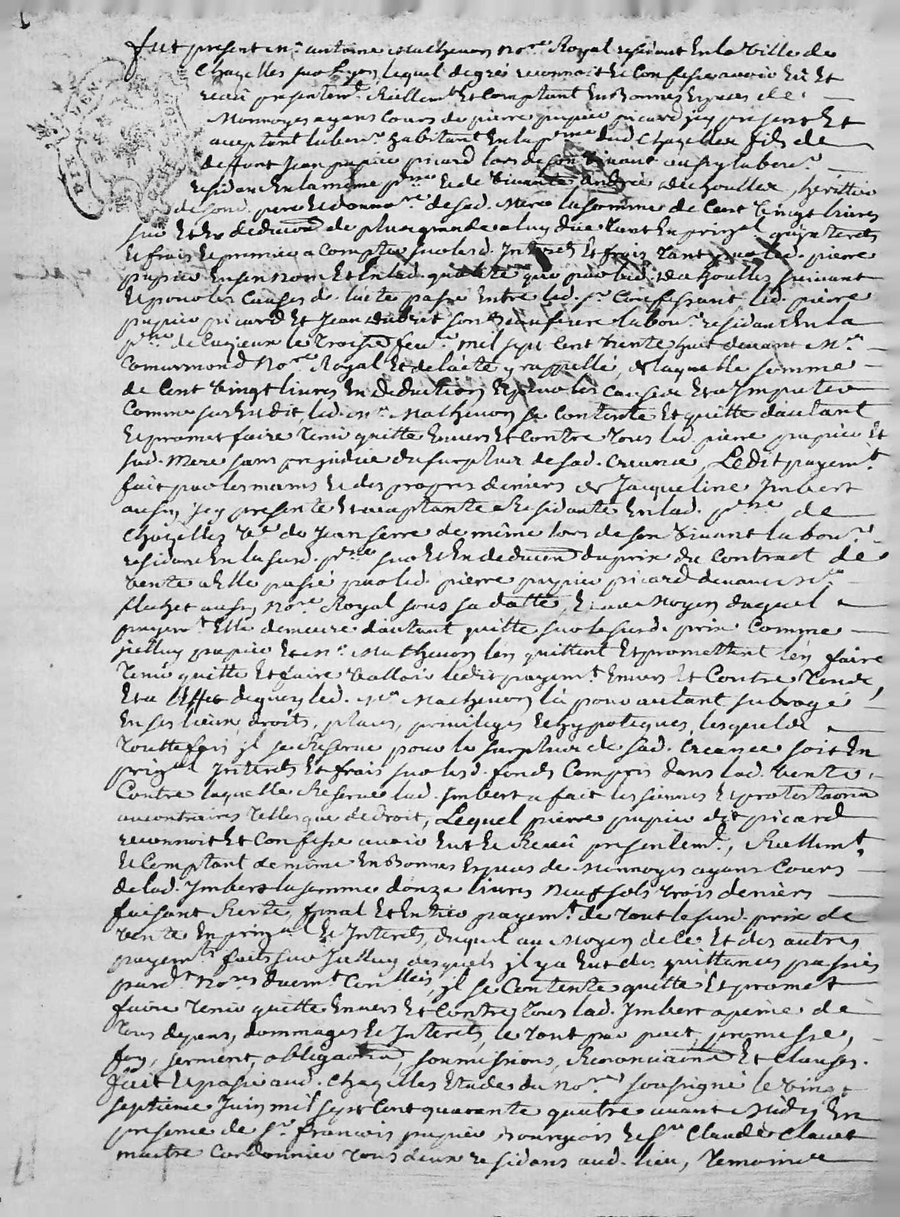 fut present m.e antoine Mathevon no.re Royal residant En la Ville de
Chazelles sur Lyon lequel de gré reconnoit Et Confesse avoir Eü Et
receü presentem.t Reellem.t Et Comptant En Bonnes Espèces de
Monnoyes ayans Cours de pierre pupier picard jcy present Et
acceptant labou.r habitant En la p.sse dud Chazelles fils de
deffunt Jean pupier picard lors de son Vivant aussy labou.r
residant En la même p.sse et de Vivante André heritier
de son d. pere Et donnat.re de sad. Mere la somme de Cent Vingt livres
sur Et En deduction de plus grande a luy due tant En prinpal qu'jnterets
Et frais Et premier a Compte sur lesd. Jnterets Et frais tant par led. pierre
pupier En son nom Et En lad. qualité que par lad. suivant
Et pour les Causes de lacte passé Entre led. s.r Confessant led. pierre
pupier picard Et Jean son Beaufrere labou.r residant En la
p.sse de le troisie fev.r mil sept Cent trente huit devant M.e
no.re Royal Et de lacte y rappellé, de laquelle somme
de Cent Vingt livres En deduction Et pour les Causes Et a Imputer
Comme sus Est dit, led. m.e Mathevon se Contente Et quitte dautant
Et promet faire tenir quitte Envers Et Contre tous led. pierre pupier Et
sad. Mere sans prejudice du surplus de sad. Creance, Ledit payem.t
fait par les mains Et des propres deniers de Jacqueline Jmbert
aussy jcy presente Et acceptante Residante En lad. p.sse de
Chazelles V.e de Jean serre de même lors de son Vivant labou.r
residant En la susd. p.sse sur Et En deduction du prix du Contract de
Vente a Elle passé par led. pierre pupier picard devant M.e
aussy no.re Royal sous sa datte, Et au Moyen duquel
payem.t Elle demeure dautant quitte sur le susd. prix Comme
jcelluy pupier Et m.e Mathevon len quittent Et promettent len faire
tenir quitte Et faire Valloir ledit payem.t Envers Et Contre tous,
Et a leffet dequoy led. m.e Mathevon la pour autant subrogé
En ses lieux, droits, places, privileges Et hypoteques, lesquels
touttefois jl se Reserve pour le surplus de sad. Creance soit En
prinpal Jnterets Et frais sur lesd. fonds Compris dans lad. Vente,
Contre laquelle Reserve lad. Jmbert a fait les siennes Et protestations
au contraires telles que de droit, Lequel pierre pupier dit picard
reconnoit Et Confesse avoir Eut Et Receü presentem.t, Reellem.t
Et Comptant de même En Bonnes Espèces de Monnoyes ayans Cours
de lad. Jmbert la somme donze livres neuf sols trois deniers
faisant Reste, final Et Entier payem.t de tout le susd. prix de
Vente En prinpal Et Jnterets, duquel au Moyen de ce Et des autres
payem.ts faits sur jcelluy desquels jl y a Eut des quittances passées
pard.t no.res duem.t Conllées, jl se Contente quitte Et promet
faire tenir quitte Envers Et Contre tous lad. Jmbert a peine de
tous depens, dommages Et Jnterets, le tout par pact, promesse,
foy, serment, obligations, soumissions, Renonciations Et Clauses.
fait Et passé aud. Chazelles Etude du no.re soussigné le Vingt
septieme Juin mil sept Cent quarante quatre avant Midy En
presence de s.r francois pupier Bourgeois Et s.r Claude
maitre Cordonnier tous deux residans aud. lieu, temoins